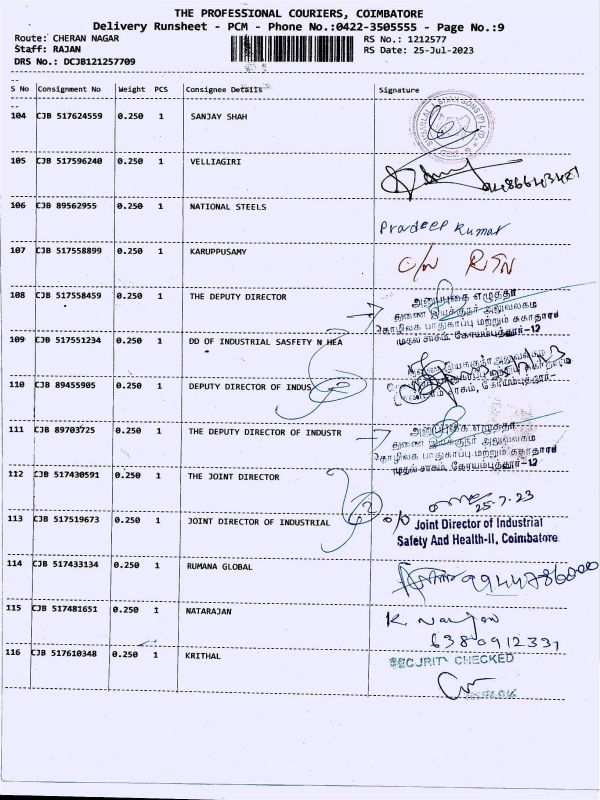 THE PROFESSIONAL COURIERS, COIMBATORE
Delivery Runsheet - PCM - Phone No.:0422-3505555 - Page No.:9
Route: CHERAN NAGAR RS No.: 1212577
Staff: RAJAN RS Date: 25-Jul-2023
DRS No.: DCJB121257709
S No Consignment No Weight PCS Consignee Details Signature
104 CJB 517624559 0.250 1 SANJAY SHAH
105 CJB 517596240 0.250 1 VELLIAGIRI
106 CJB 89562955 0.250 1 NATIONAL STEELS
Pradeep Kumar
107 CJB 517558899 0.250 1 KARUPPUSAMY
C/N RTN
108 CJB 517558459 0.250 1 THE DEPUTY DIRECTOR
அனுப்புகை எழுத்தர்
துணை இயக்குநர் அலுவலகம்
தொழிலக பாதுகாப்பு மற்றும் சுகாதாரம்
முதல் சரகம், கோயம்புத்தூர்-12
109 CJB 517551234 0.250 1 DD OF INDUSTRIAL SASFETY N HEA
110 CJB 89455905 0.250 1 DEPUTY DIRECTOR OF INDUS
2
111 CJB 89703725 0.250 1 THE DEPUTY DIRECTOR OF INDUSTR
அனுப்புகை எழுத்தர்
துணை இயக்குநர் அலுவலகம்
தொழிலக பாதுகாப்பு மற்றும் சுகாதாரம்
முதல் சரகம், கோயம்புத்தூர்-12
112 CJB 517430591 0.250 1 THE JOINT DIRECTOR
25.7.23
113 CJB 517519673 0.250 1 JOINT DIRECTOR OF INDUSTRIAL
2 o/o Joint Director of Industrial
Safety And Health-II, Coimbatore
114 CJB 517433134 0.250 1 RUMANA GLOBAL
9944786000
115 CJB 517481651 0.250 1 NATARAJAN
6380912331
116 CJB 517610348 0.250 1 KRITHAL
SECURITY CHECKED